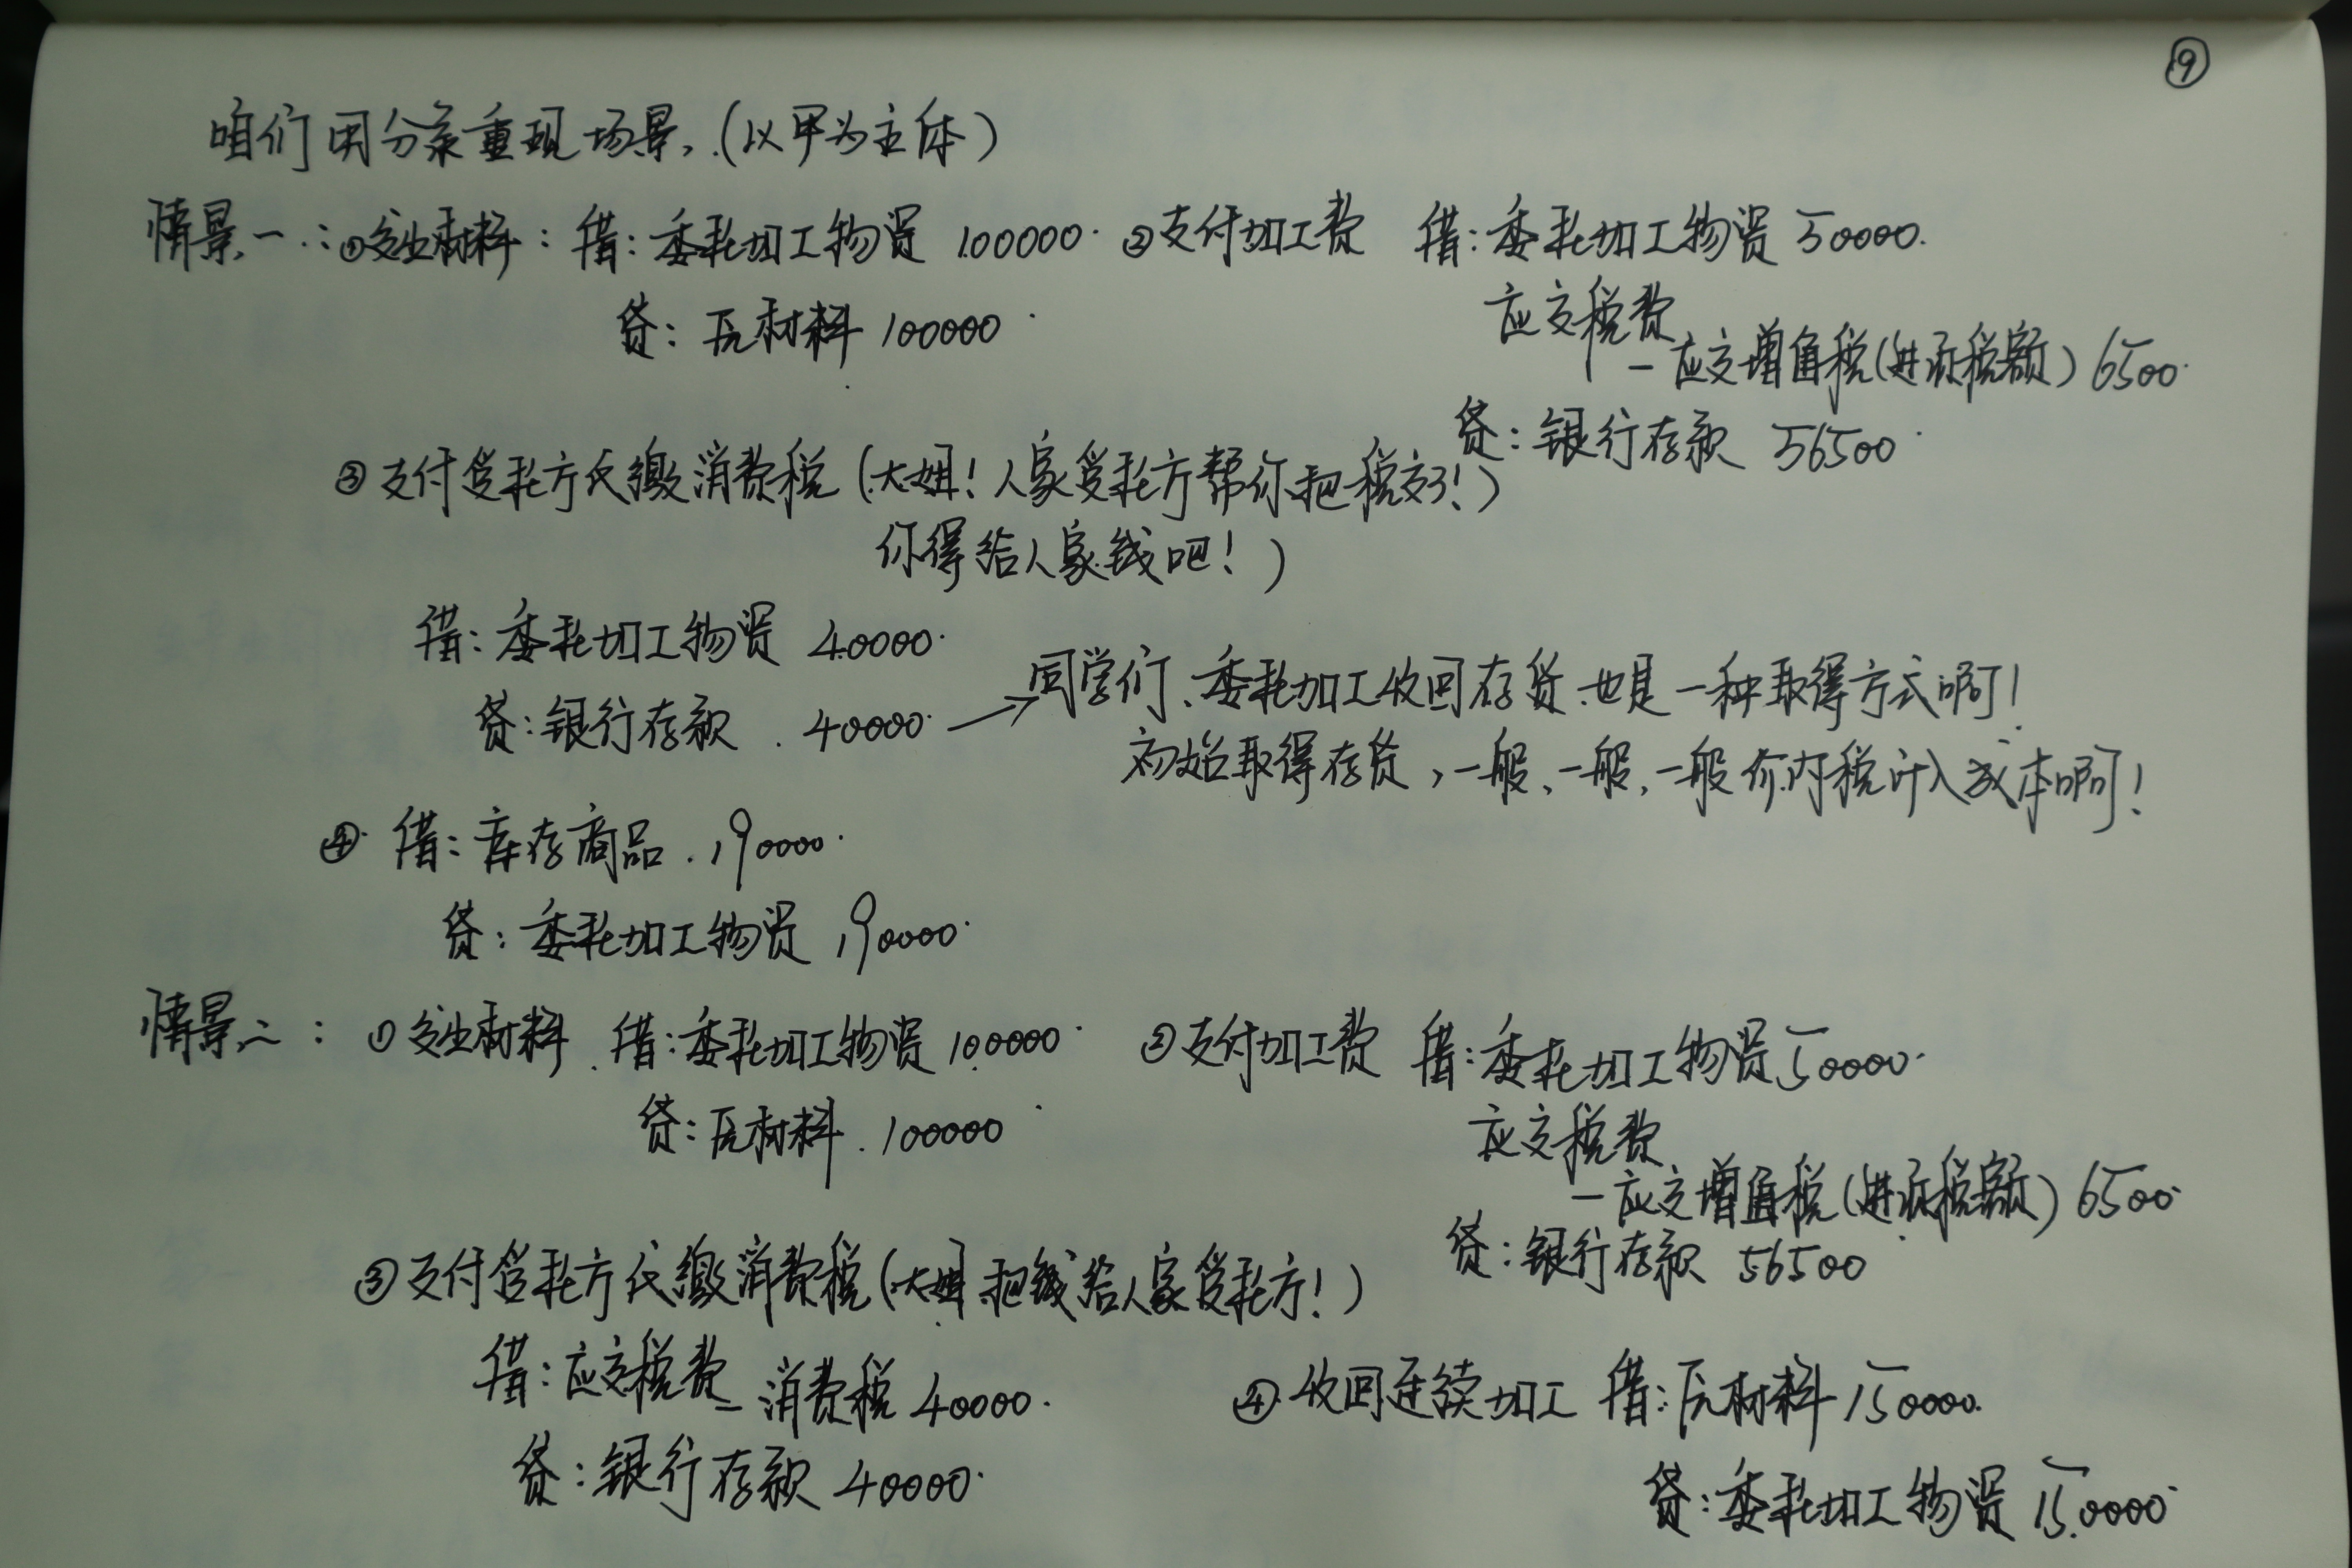 ⑨
咱们用分录重现场景.(以甲为主体)
情景一:①发出材料:借:委托加工物资 100000 ②支付加工费 借:委托加工物资 50000
贷:原材料 100000
应交税费
-应交增值税(进项税额) 6500
贷:银行存款 56500
③支付受托方代缴消费税(大姐!人家受托方帮你把税交了!)
你得给人家钱吧!)
借:委托加工物资 40000
贷:银行存款 40000 → 同学们、委托加工收回存货也是一种取得方式啊!
初始取得存货,一般、一般,一般价内税计入成本啊!
④ 借:库存商品 190000
贷:委托加工物资 190000
情景二:①发出材料 借:委托加工物资 100000 ②支付加工费 借:委托加工物资 50000
贷:原材料 100000
应交税费
-应交增值税(进项税额) 6500
贷:银行存款 56500
③支付受托方代缴消费税(大姐把钱给人家受托方!)
借:应交税费-消费税 40000
贷:银行存款 40000
④收回连续加工 借:原材料 150000
贷:委托加工物资 150000